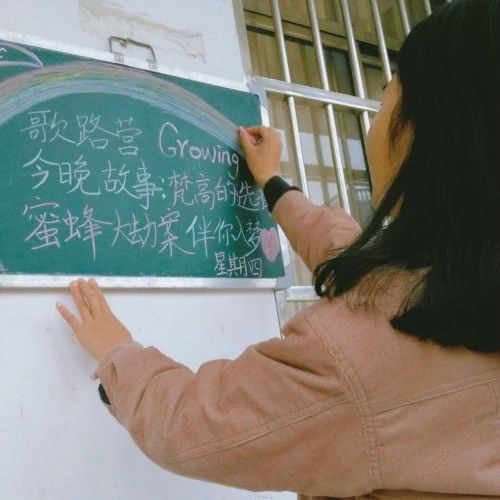 歌路营 Growing
今晚故事:梵高的选
蜜蜂大劫案伴你入梦
星期四